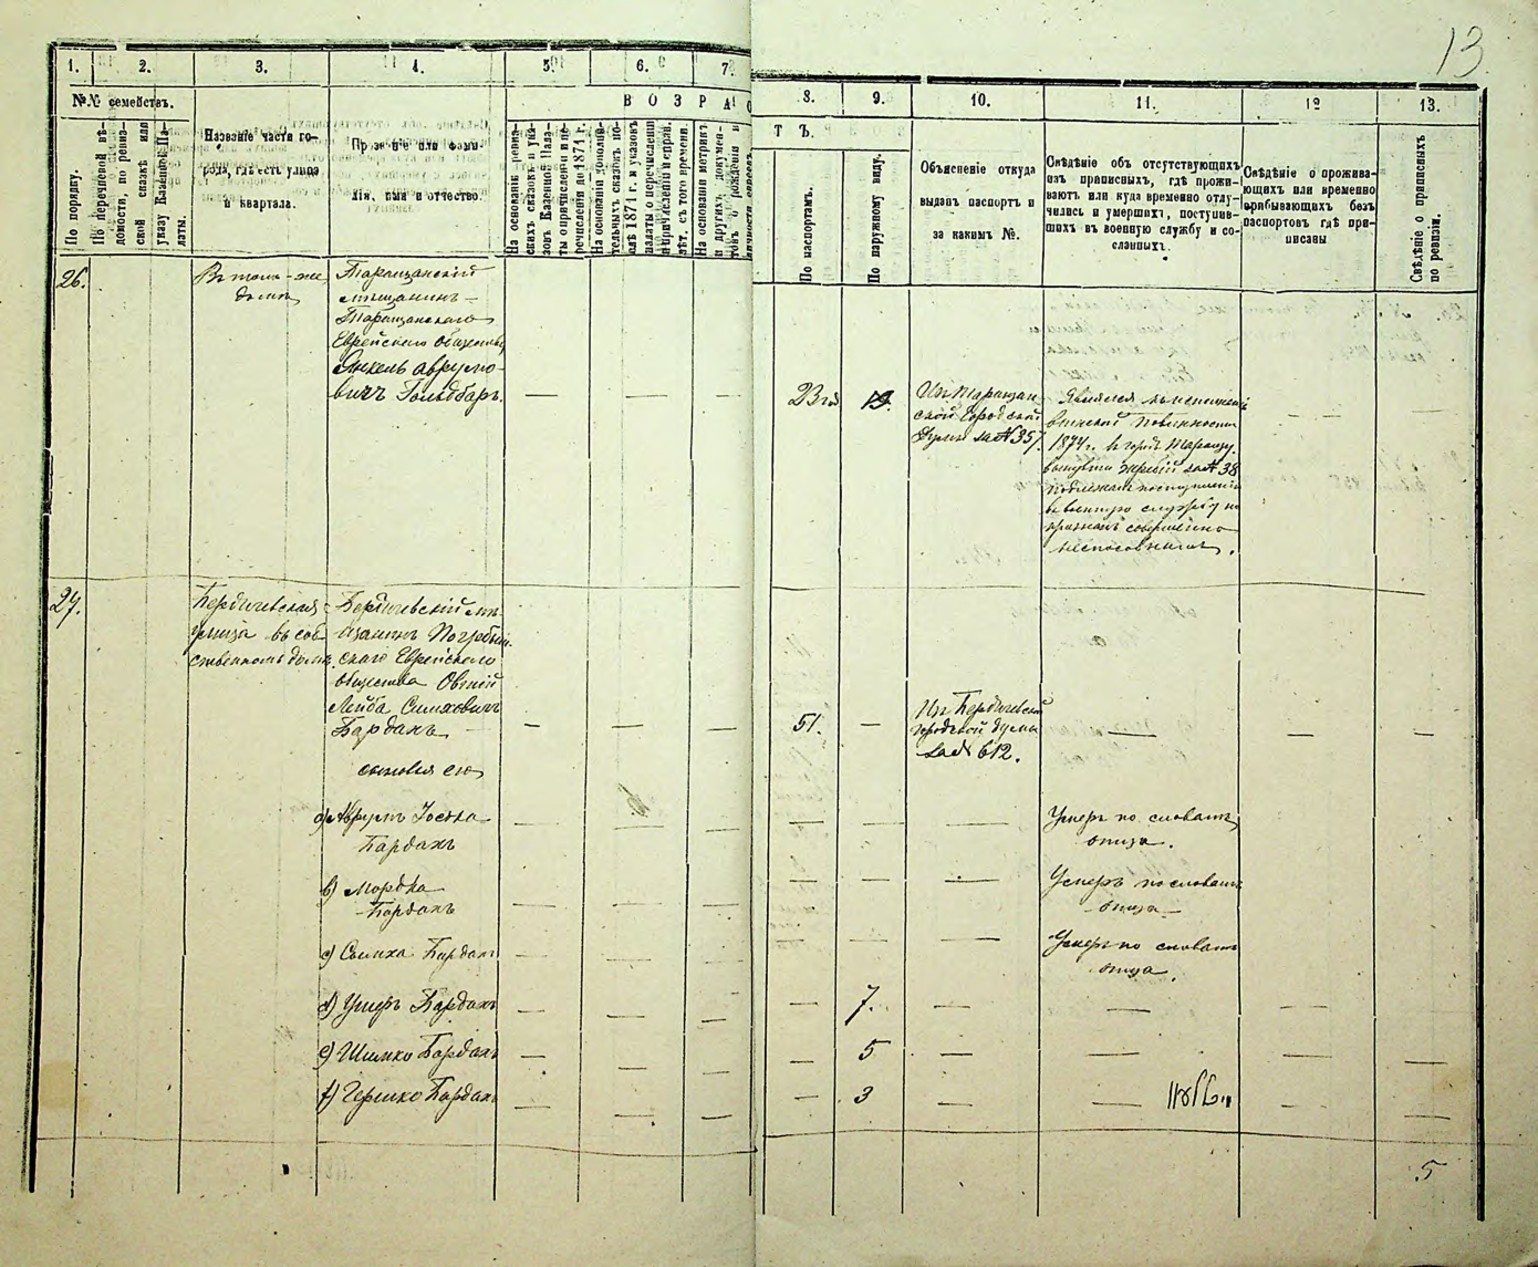 13
1. 2. 3. 4. 5. 6. 7. 8. 9. 10. 11. 12 13.
№№ семействъ.
По порядку.
По перечневой вѣ-
домости, по ревиз-
ской сказкѣ или
указу Казенной Па-
латы.
Названіе части го-
рода, гдѣ есть улица
и квартала.
Прозваніе или фами-
лія, имя и отчество.
В О З Р А С
Т Ъ.
На основаніи ревиз-
скихъ сказокъ и ука-
зовъ Казенной Пала-
ты о причисленіи и пе-
речисленіи до 1874 г.
На основаніи дополни-
тельныхъ сказокъ по-
слѣ 1874 г. и указовъ
палаты о перечисленіи
и причисленіи и справ.
лѣт. съ того времени.
На основаніи метрикъ
и другихъ докумен-
товъ о рожденіи и
По паспортамъ.
По наружному виду.
Объясненіе откуда
выданъ паспортъ и
за какимъ №.
Свѣдѣніе объ отсутствующихъ
изъ приписныхъ, гдѣ прожи-
ваютъ или куда временно отлу-
чились и умершихъ, поступив-
шихъ въ военную службу и со-
сланныхъ.
Свѣдѣніе о прожива-
ющихъ или временно
прибывающихъ безъ
паспортовъ гдѣ при-
писаны
Свѣдѣніе о приписныхъ
по ревизіи.
26.
Въ томъ-же
домѣ
Таращанскій
мѣщанинъ —
Таращанскаго
Еврейскаго общества
Янкель Аврумо-
вичъ Гольдбаръ.
— — —
23 г.
19.
Изъ Таращан
ской Городской
Думы за № 357.
Явился къ исполненію
воинской повинности
1874 г. въ городѣ Таращу.
вынулъ жребій за № 38
подлежалъ поступленію
въ военную службу но
признанъ совершенно
неспособнымъ.
— —
27.
Бердичевская
улица въ соб-
ственномъ домѣ.
Бердичевскій мѣ-
щанинъ Погребыщ-
скаго Еврейскаго
общества Овсій
Лейба Симховичъ
Бардахъ
— — —
51. —
Изъ Бердичевской
городской думы
за № 612.
— — —
сыновья его
а) Аврумъ Іоська
Бардахъ
— — — — — —
Умеръ по словамъ
отца.
b) Мордка
Бардахъ
— — — — — —
Умеръ по словамъ
отца —
c) Симха Бардахъ
— — —
Умеръ по словамъ
отца.
d) Ушеръ Бардахъ — — — — 7. — — —
e) Шимко Бардахъ — — — — 5 — — — —
f) Гершко Бардахъ — — — — 3 — — — —
5